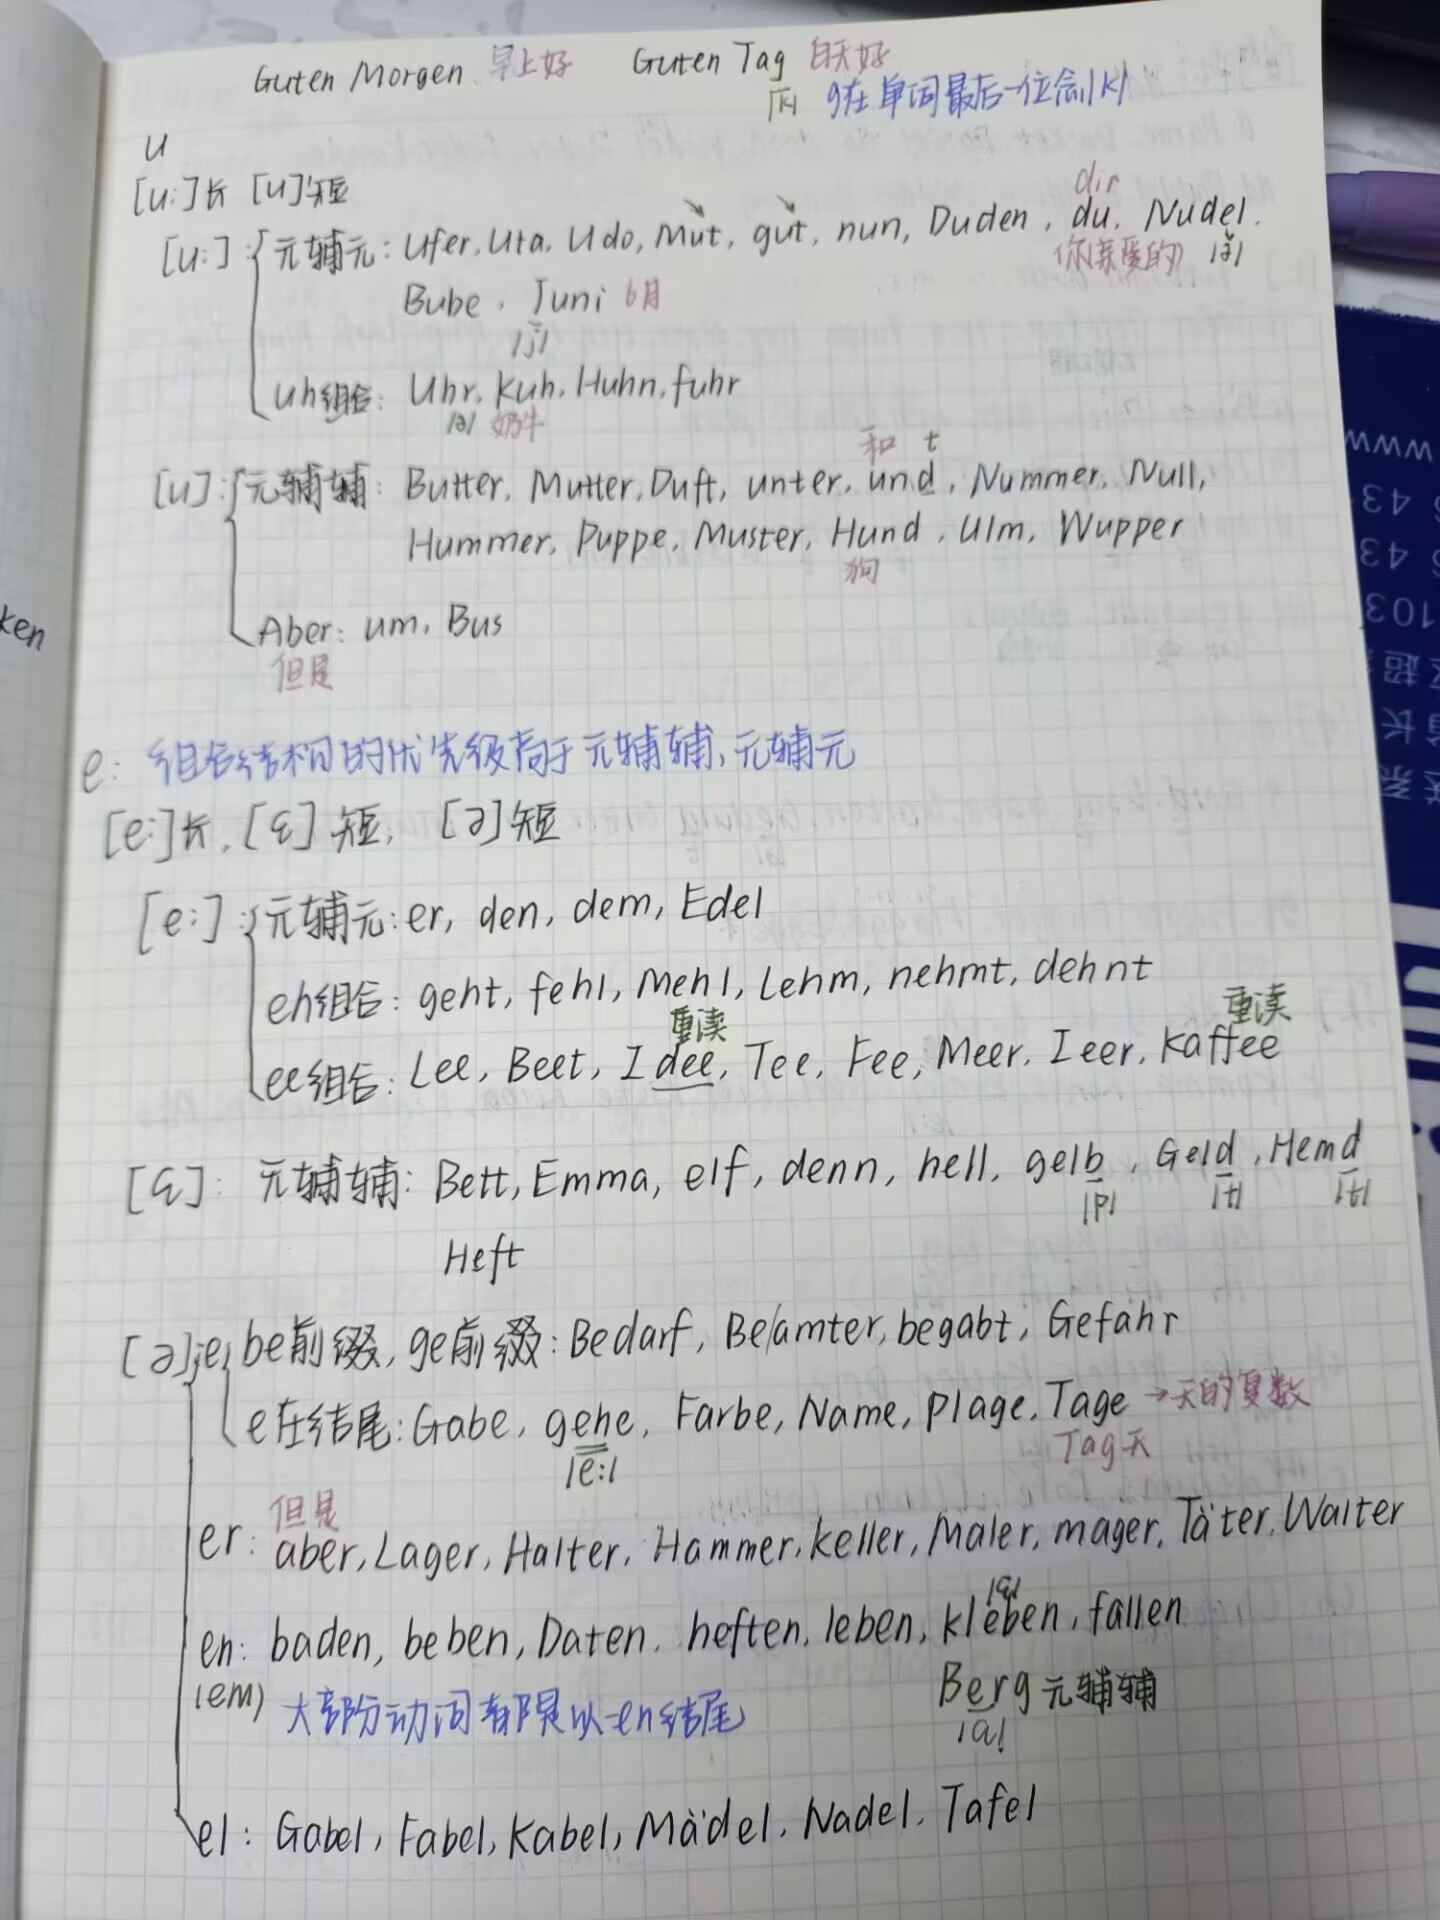 Guten Morgen 早上好 Guten Tag 白天好
|k| g在单词最后一位念|k|
u
[u:]长 [u]短
dir
[u:]: 元辅元: Ufer, Uta, Udo, Mut, gut, nun, Duden, du, Nudel.
你(亲爱的) |ə|
Bube, Juni 6月
|j|
uh组合: Uhr, Kuh, Huhn, fuhr
|ə| 奶牛
和 t
[u]: 元辅辅: Butter, Mutter, Duft, unter, und, Nummer, Null,
Hummer, Puppe, Muster, Hund, Ulm, Wupper
狗
Aber: um, Bus
但是
ken
e: 组合结构的优先级高于元辅辅,元辅元
[e:]长, [ɛ]短, [ə]短
[e:]: 元辅元: er, den, dem, Edel
eh组合: geht, fehl, Mehl, Lehm, nehmt, dehnt
重读 重读
ee组合: Lee, Beet, Idee, Tee, Fee, Meer, leer, Kaffee
[ɛ]: 元辅辅: Bett, Emma, elf, denn, hell, gelb, Geld, Hemd
|p| |t| |t|
Heft
[ə]: e, be前缀, ge前缀: Bedarf, Be/amter, begabt, Gefahr
e在结尾: Gabe, gehe, Farbe, Name, Plage, Tage →天的复数
|e:| Tag天
但是
er: aber, Lager, Halter, Hammer, keller, Maler, mager, Täter, Walter
en: baden, beben, Daten, heften, leben, kleben, fallen
(em) 大部分动词都是以-en结尾
Berg 元辅辅
el: Gabel, Fabel, Kabel, Mädel, Nadel, Tafel